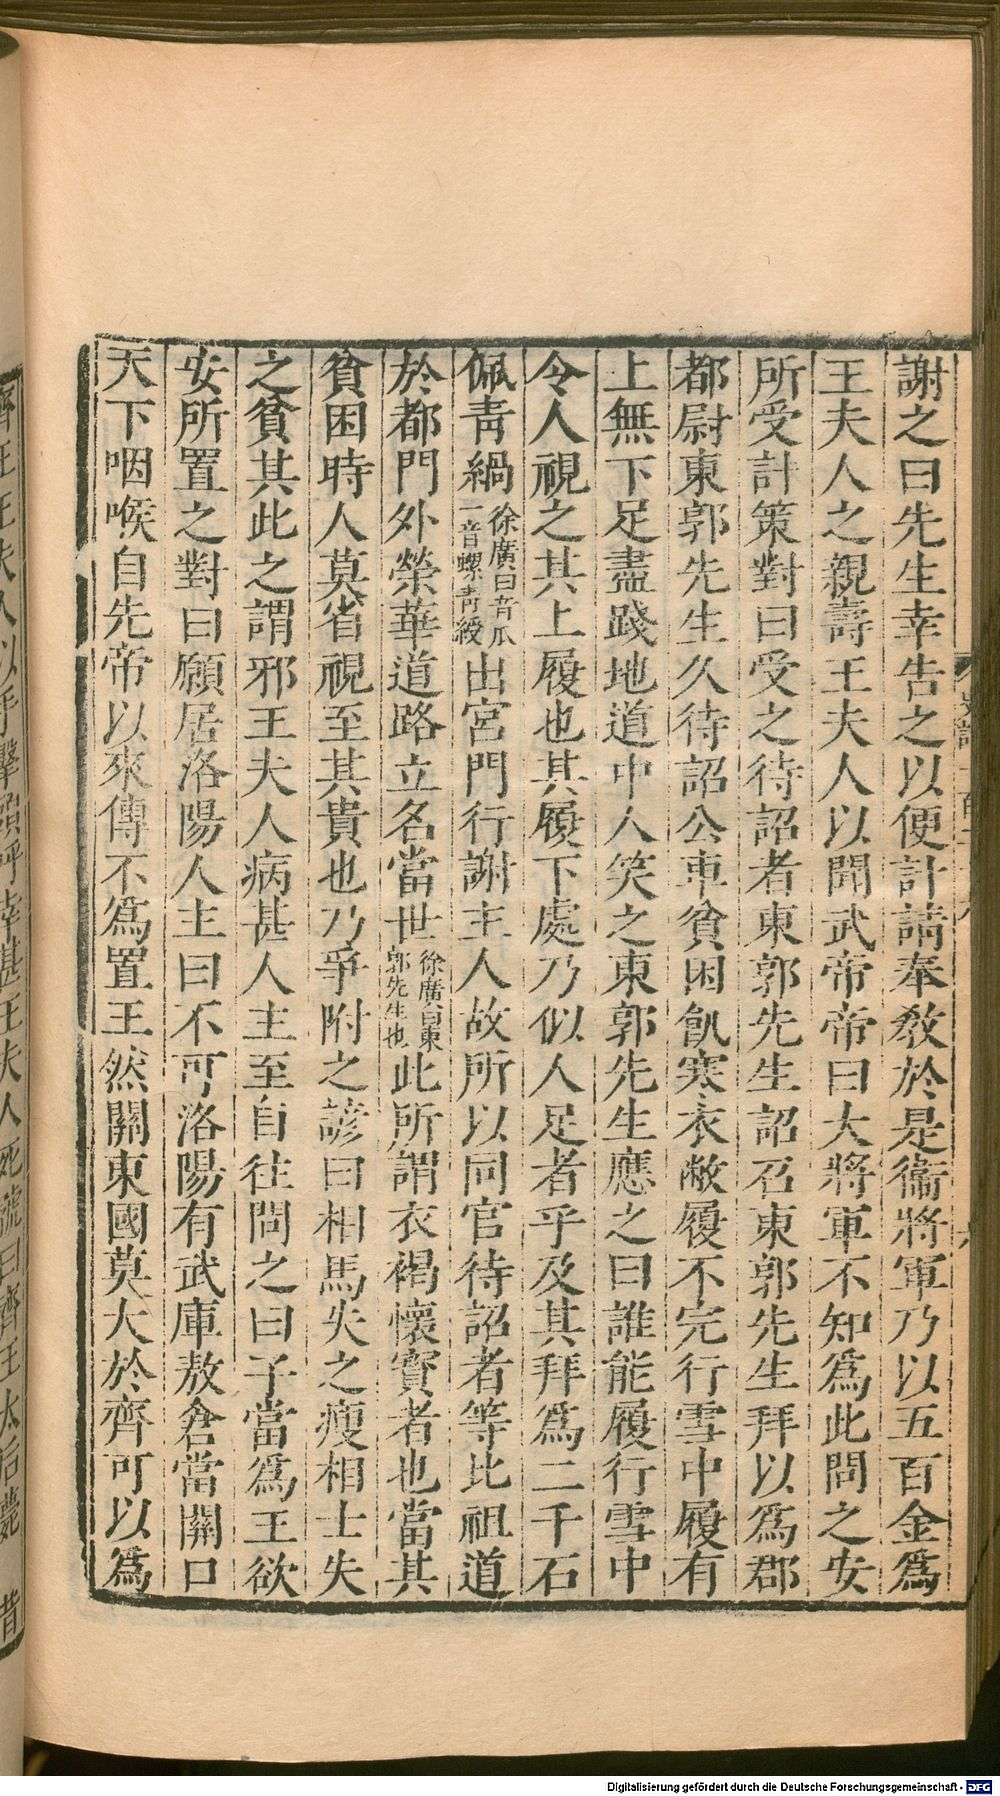 謝之曰先生幸告之以便計請奉敎於是衞將軍乃以五百金爲
王夫人之親壽王夫人以聞武帝帝曰大將軍不知爲此問之安
所受計策對曰受之待詔者東郭先生詔召東郭先生拜以爲郡
都尉東郭先生久待詔公車貧困飢寒衣敝履不完行雪中履有
上無下足盡踐地道中人笑之東郭先生應之曰誰能履行雪中
令人視之其上履也其履下處乃似人足者乎及其拜爲二千石
佩靑緺徐廣曰音瓜一音螺靑綬出宮門行謝主人故所以同官待詔者等比祖道
於都門外榮華道路立名當世徐廣曰東郭先生也此所謂衣褐懷寳者也當其
貧困時人莫省視至其貴也乃爭附之諺曰相馬失之瘦相士失
之貧其此之謂邪王夫人病甚人主至自往問之曰子當爲王欲
安所置之對曰願居洛陽人主曰不可洛陽有武庫敖倉當關口
天下咽喉自先帝以來傳不爲置王然關東國莫大於齊可以爲
齊王王夫人以手擊頭呼幸甚王夫人死號曰齊王太后薨 昔
Digitalisierung gefördert durch die Deutsche Forschungsgemeinschaft - DFG